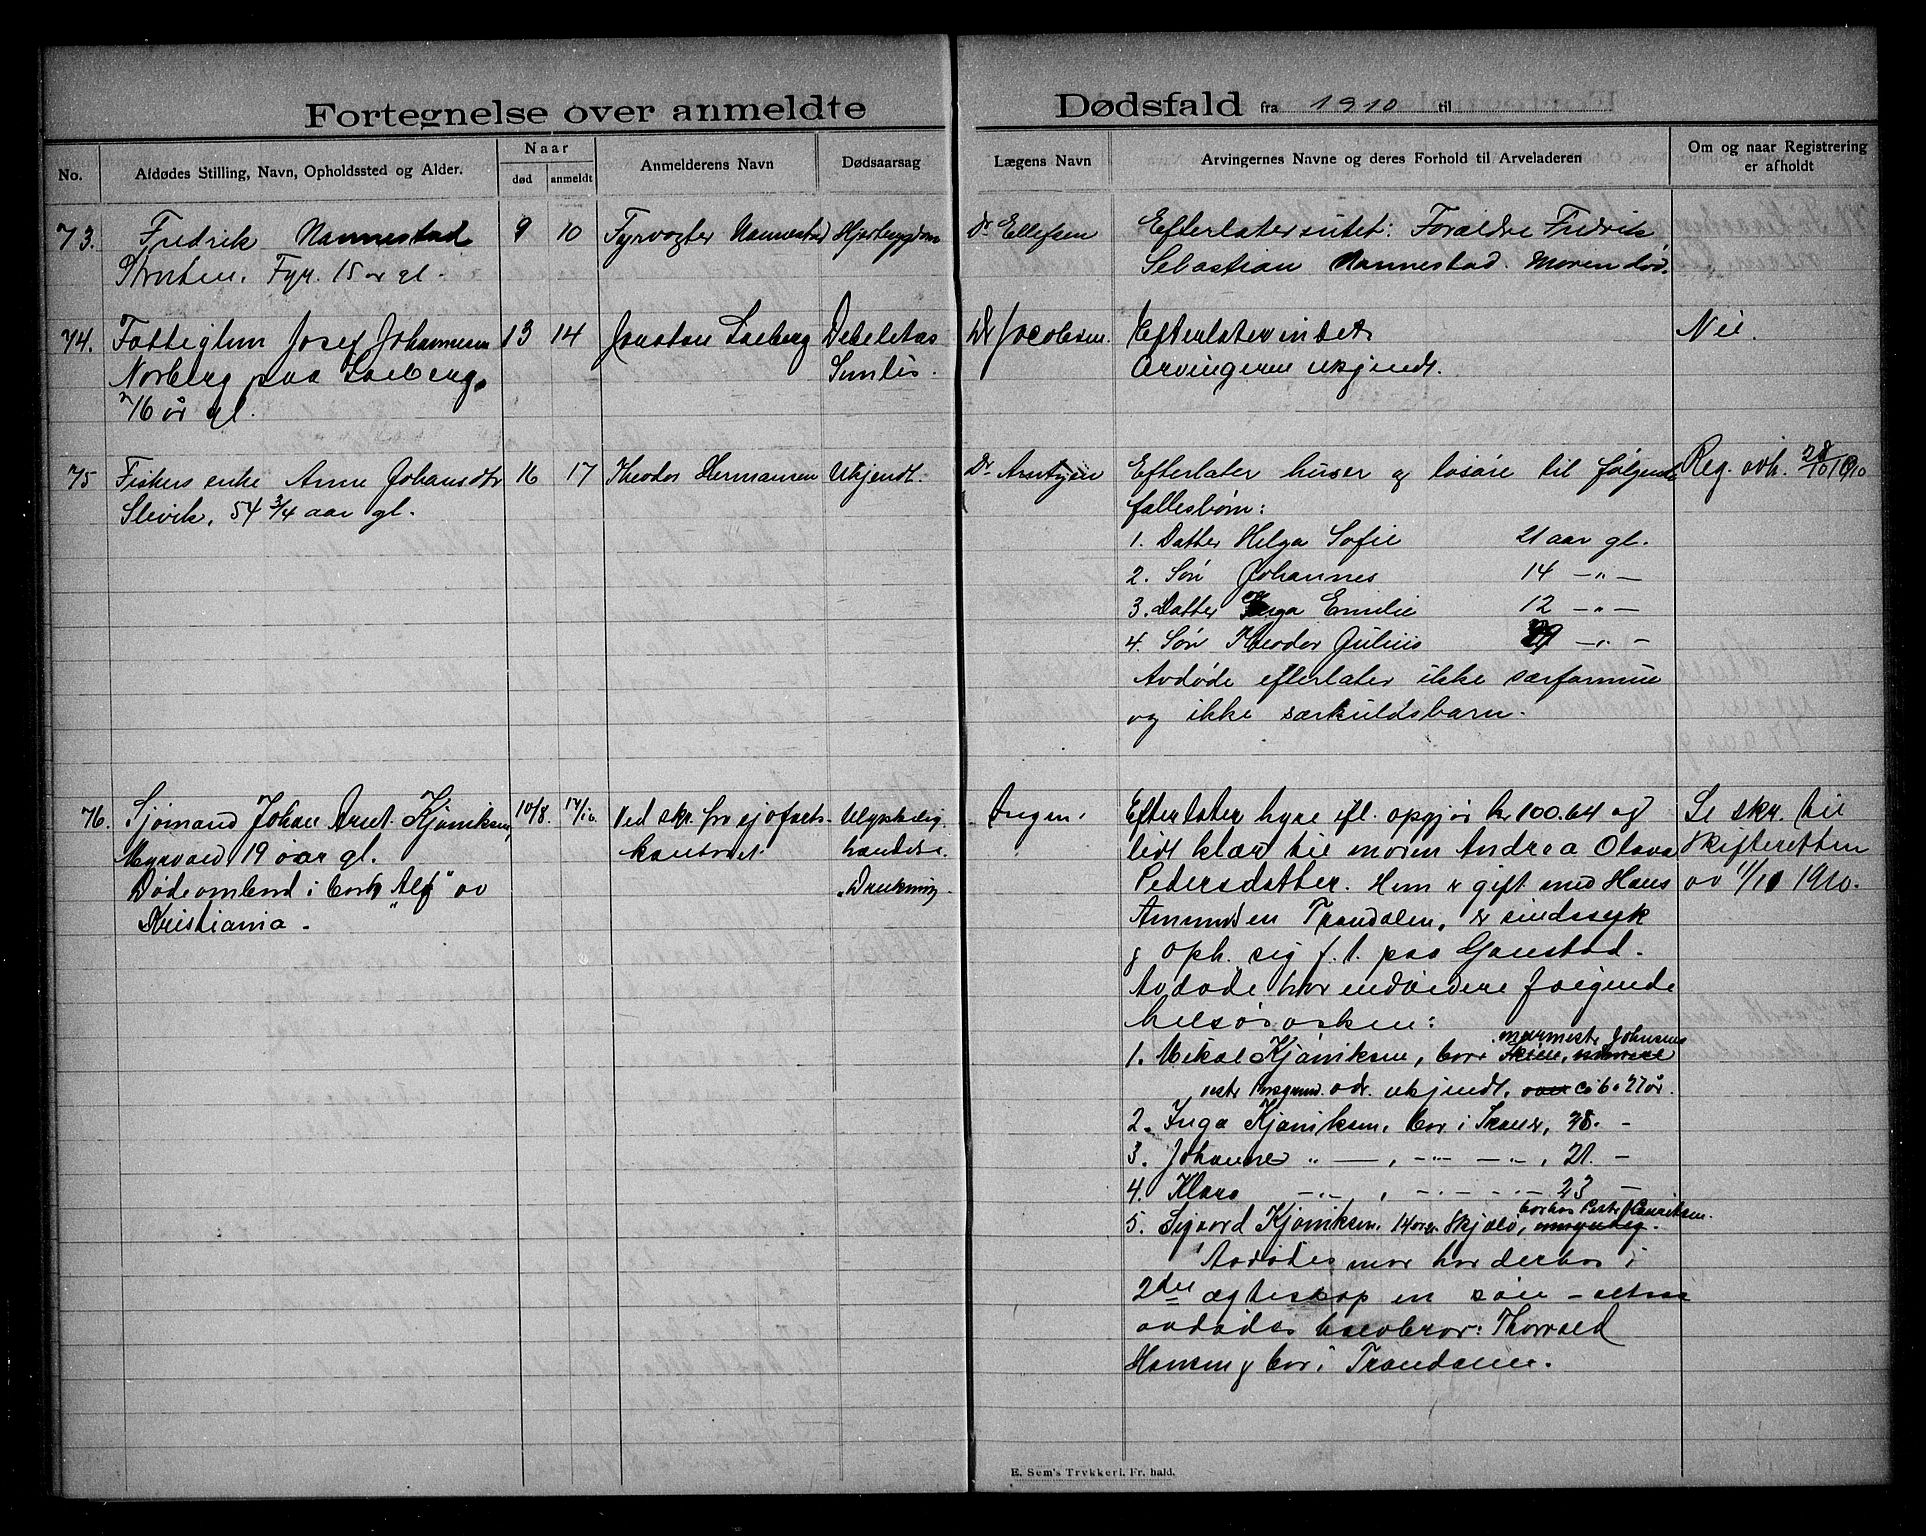 Fortegnelse over anmeldte Dødsfald fra 1910 til
No.
Afdødes Stilling, Navn, Opholdssted og Alder.
Naar
død
anmeldt
Anmelderens Navn
Dødsaarsag
Lægens Navn
Arvingernes Navne og deres Forhold til Arveladeren
Om og naar Registrering
er afholdt
73. Fredrik Nannestad 9 10 Fyrvogter Nannestad Dr Ellefsen Efterlater intet: Forældre Fredrik
Fyr. 15 år gl. Sebastian Nannestad. Moren død.
74. Fattiglem Josef Johannesen 13 14 Saeberg Dr Jacobsen. Efterlater intet
Norberg paa Saeberg. Senilis. Arvingerne ukjendt.
76 år gl.
Nei.
75 Fiskers enke Anne Johansdtr 16 17 Theodor Hermansen Ukjendt. Dr Efterlater huser og løsøre til følgende Reg. avh. 28/10 1910
Slevik, 54 3/4 aar gl. fællesbørn:
1. Datter Helga Sofie 21 aar gl.
2. Søn Johannes 14 — " —
3. Datter Inga Emilie 12 — " —
4. Søn Theodor Julius 9 — " —
Avdøde efterlater ikke særformue
og ikke særkuldsbarn.
76. Sjømand Johan Arnt Kjøniksen, 10/8 17/10 Ved skr. fra sjøfarts- Ulykkelig Ingen. Efterlater hyre efl. opgjør kr 100.64 og Se skr. til
Myrvold 19 aar gl. kontoret. hændelse. lidt klær til moren Andrea Olava Skifteretten
Døde ombord i bark "Alf" av "Drukning. Pedersdatter. Hun er gift med Hans av 11/11 1910.
Kristiania. Amundsen Trandalen, er sindssyk
g oph. sig f. t. paa Gaustad.
Avdøde har endvidere følgende
helsøsøsken:
murmester Johnsens
1. Mikal Kjøniksen, bor i
adr. ukjendt, ca. 27 år.
2. Inga Kjøniksen, bor i 28. -
3. Johanne " — , — " — " , 21. —
4. Klara — " — , — " — " — 23 —
bor hos Henriksen.
5. Sigvard Kjøniksen, 14 år Skjælø,
Avdødes mor har derhos i
2det ægteskap en søn – altsaa
avdødes halvbror: Thorvald
Hansen g bor i Trandalen.
E. Sem's Trykkeri, Fr. hald.